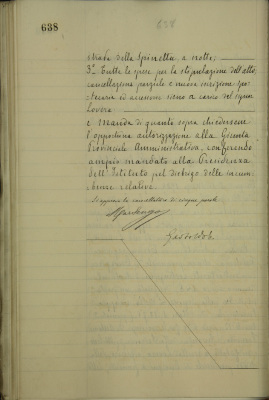 638
638
strada della Spinetta, a notte;
3.° Tutte le spese per la stipulazione dell'atto,
cancellazione parziale e nuova iscrizione ipo-
tecaria ed accessori sono a carico del signor
Lovera
e Manda di quanto sopra chiedersene
l'opportuna autorizzazione alla Giunta
Provinciale Amministrativa, conferendo
ampio mandato alla Presidenza
dell'Istituto pel disbrigo delle incum-
benze relative.
Si approva la cancellatura di cinque parole